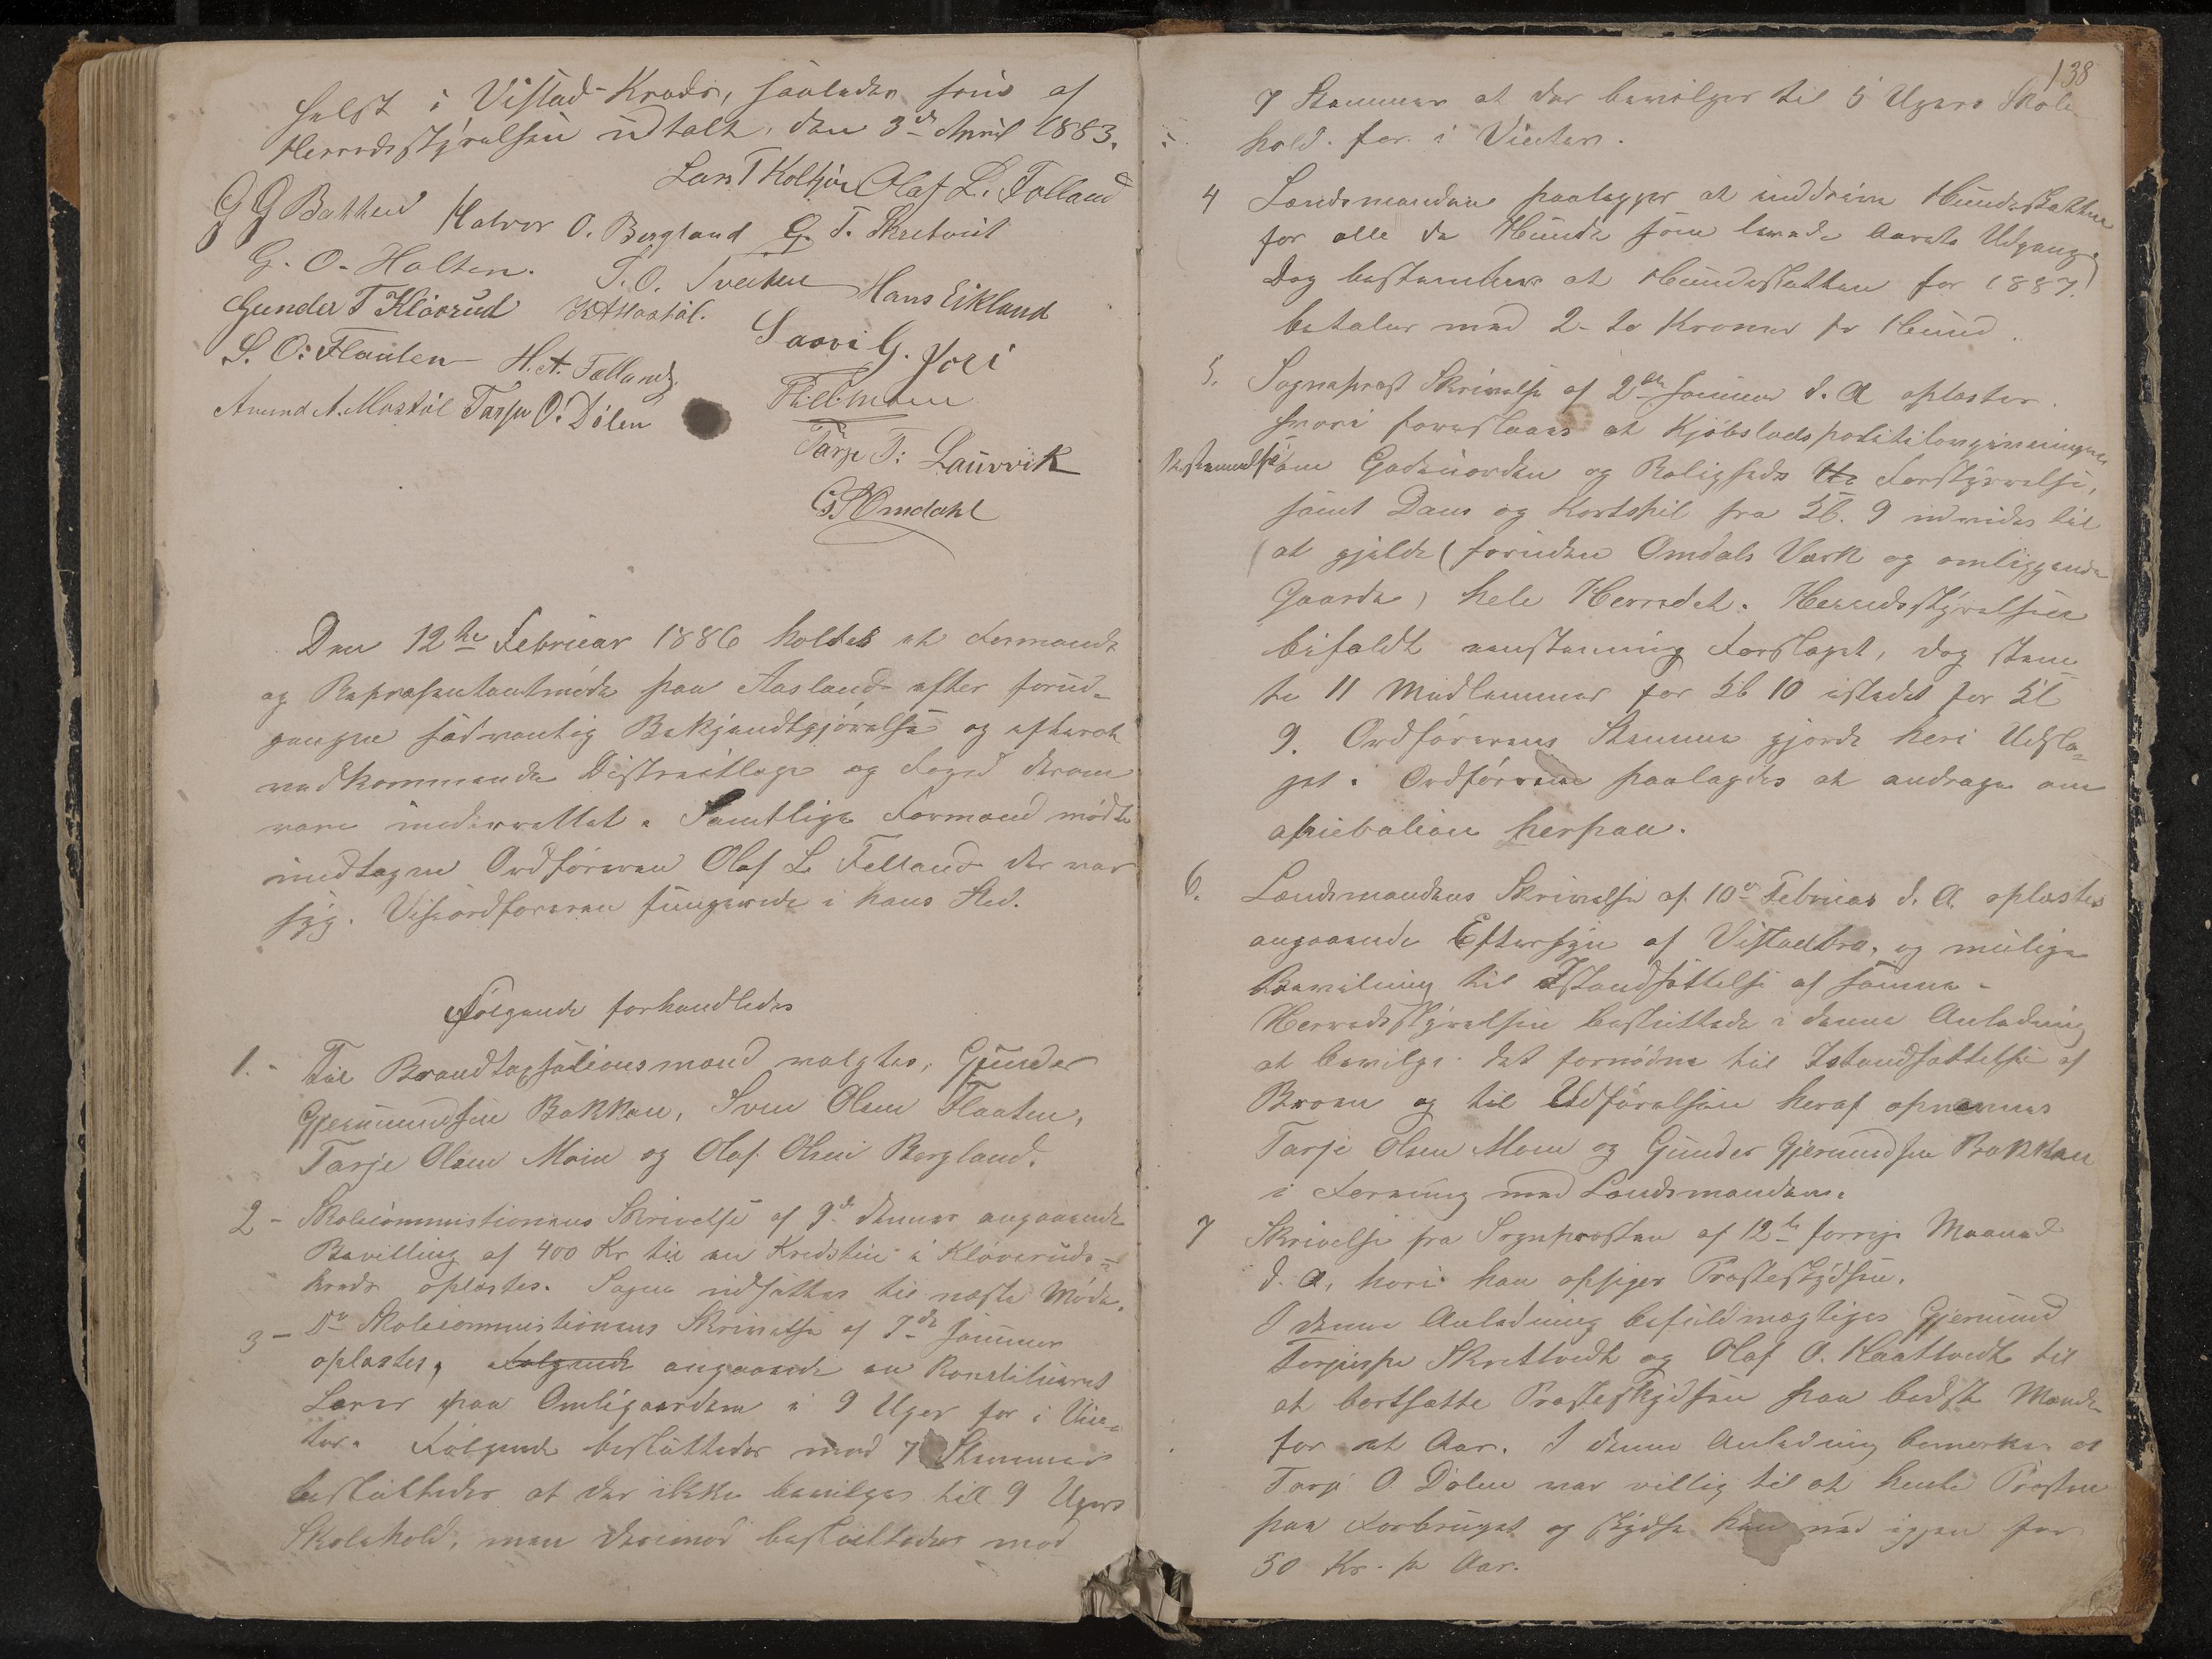 helst i Vistad-Kreds, saaledes som af
Herredsstyrelsen udtalt, den 3de April 1883.
Lars T Holtjøn Olaf L. Folland
G G Bakken Halvor O. Bergland G. T. Skretveit
G. O. Holten. T. O. Tveiten Hans Eikland
Gunder T Klovrud
S. O. Flaaten H. A. Fælland Saavi G.
Amund A. Mostøl Tarje O. Dölen
Tarje T. Laurvik
G S Omdahl
Den 12te Februar 1886 holdes et Formands
og Repræsentantmøde paa Aasland efter forud-
gangne sædvanlig Bekjendtgjørelse og efterat
vedkommende Distriktlæge og Foged derom
vare underrettet. Samtlige Formænd mødte
undtagen Ordføreren Olaf L. Felland der var
syg. Viseordføreren fungerede i hans Sted.
Følgende forhandledes
1. - Til Brandtaxsationsmænd valgtes, Gunder
Gjermundsen Bakken, Sven Olsen Flaaten,
Tarje Olsen Moin og Olaf Olsen Bergland.
2 - Skolekommistionens Skrivelse af 9de dennes angaaende
Bevilling af 400 Kr til en i Kløveruds-
kreds oplæstes. Sagen udsættes til næste Møde.
3 - Do Skolekommistionens Skrivelse af 7de Januar
oplæstes, Følgende angaaende en konstitueret
Lærer paa Omligaarden i 9 Uger for i Vin-
ter. Følgende besluttedes med 7 Stemmer
besluttedes at der ikke bevilges till 9 Ugers
Skolehold, men derimod besluttedes med
138
7 Stemmer at der bevilges til 5 Ugers Skole
hold for i Vinter.
4 Lensmanden paalægges at inddrive Hundeskatten
for alle de Hunde som levede Aarets Udgang.
Dog bestemtes at Hundeskatten for 1887.
betales med 2- to Kroner pr Hund.
5. Sogneprest Skrivelse af 2den Januar d. A oplæstes.
hvori foreslaaes at Kjøbstadspolitilovgivningens
Bestemmelse om Gadeuorden og Roligheds Forstyrrelse,
samt Dans og Kortspil fra Kl. 9 udvides til
at gjelde (foruden Omdals Værk og omliggende
Gaarde) hele Herredet. Herredsstyrelsen
bifaldt eenstemmig Forslaget, dog stem
te 11 Medlemmer for Kl 10 istedet for Kl
9. Ordførerens Stemme gjorde heri Udsla-
get. Ordføreren paalagdes at andrage om
herpaa.
6. Lensmandens Skrivelse af 10de Februar d. A. oplæstes
angaaende Eftersyn af Vistadbro, og mulige
Bevilning til Istandsættelse af samme.
Herredsstyrelsen besluttede i denne Anledning
at bevilge det fornødne til Istandsættelse af
Broen og til Udførelsen heraf opnævnes
Tarje Olsen Moen og Gunder Gjermundsen Bakken
i Forening med Lensmanden.
7 Skrivelse fra Sognepresten af 12te forrige Maaned
d. A, hvori han opsiger Presteskydsen.
I denne Anledning befuldmægtiges Gjermund
Torjussen Skretveidt og Olaf O. Haatveidt til
at bortsætte Presteskydsen paa bedste Maade
for et Aar. I denne Anledning bemerkes at
Tarje O. Dölen var villig til at hente Presten
paa Forbruget og skydse han ned igjen for
50 Kr. pr Aar.